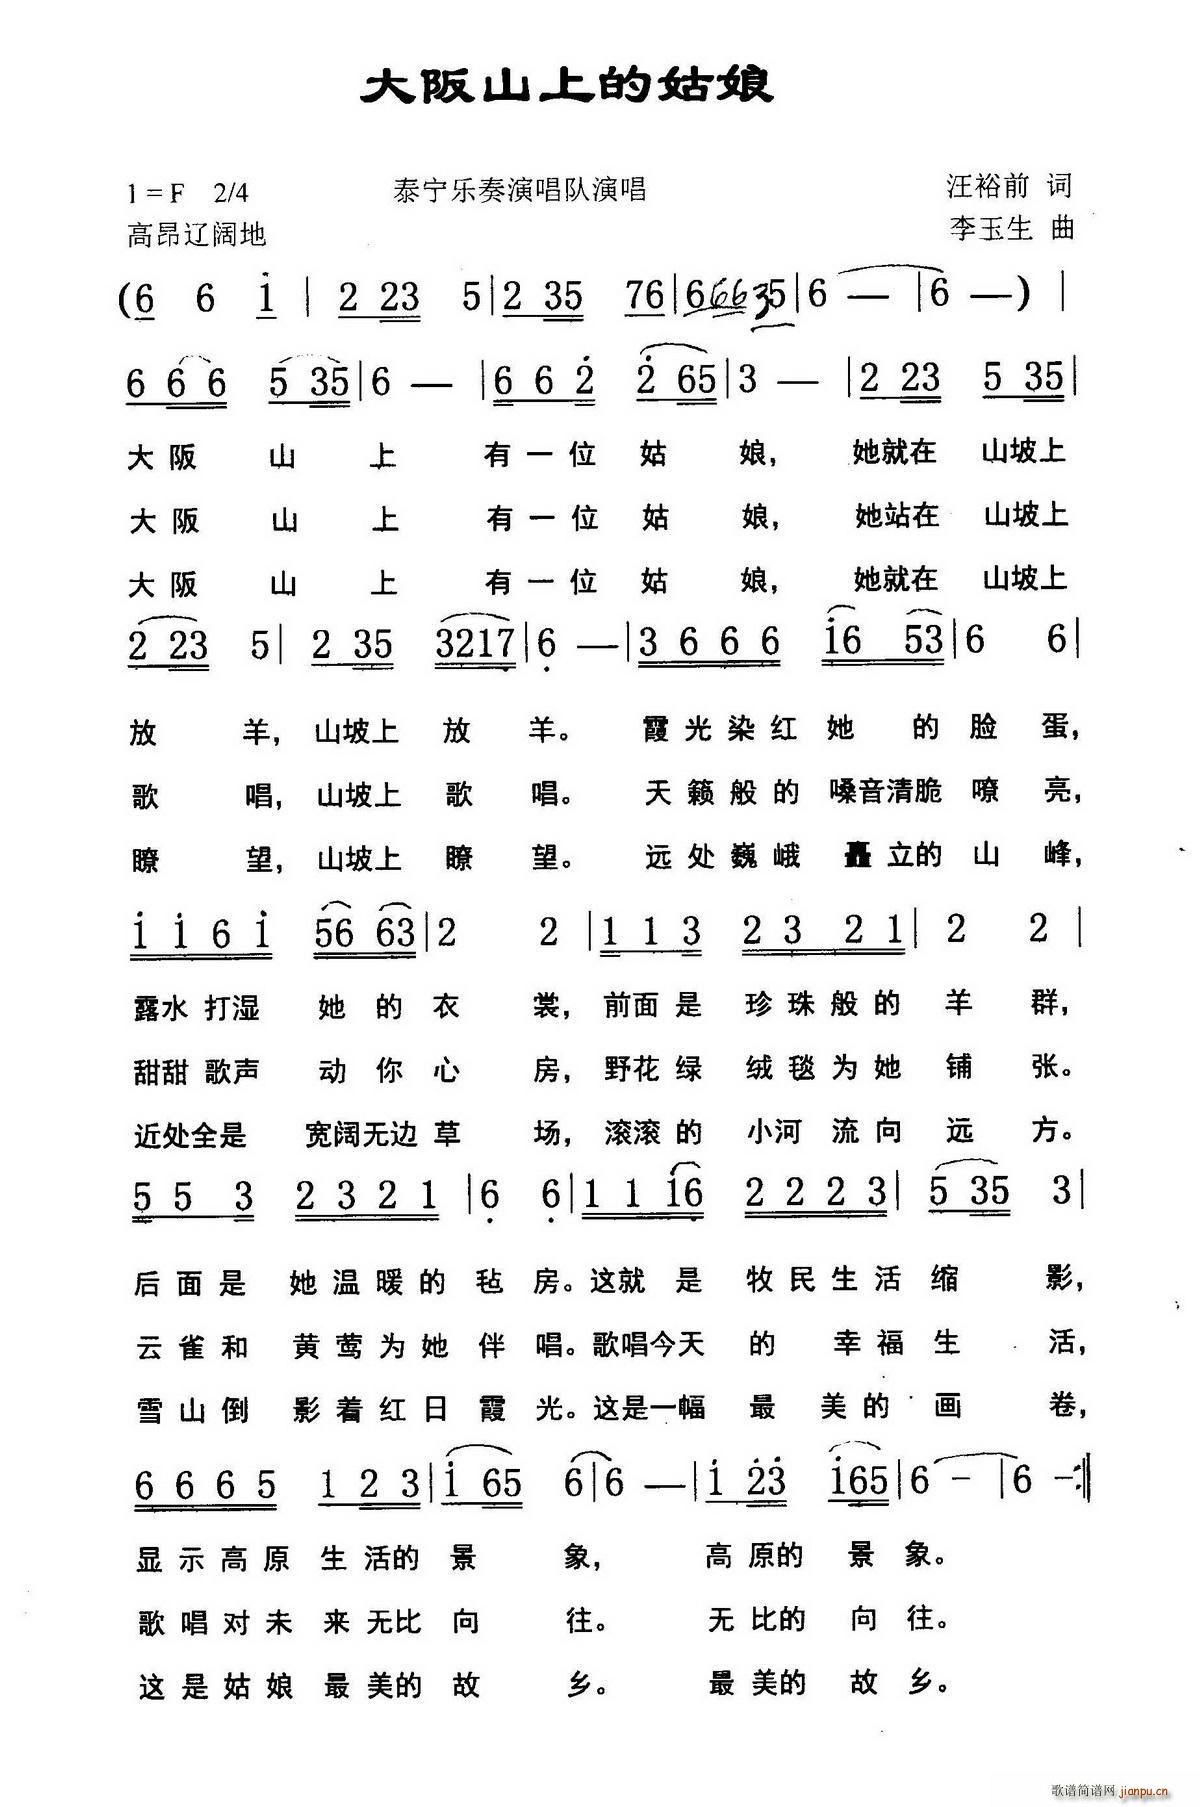 大阪山上的姑娘
1=F 2/4 泰宁乐奏演唱队演唱 汪裕前 词
高昂辽阔地 李玉生 曲
(6 6 i | 2 23 5 | 2 35 76 | 6 66 35 | 6 — | 6 —) |
6 6 6 5 35 | 6 — | 6 6 2 2 65 | 3 — | 2 23 5 35 |
大阪 山 上 有一位 姑 娘, 她就在 山坡上
大阪 山 上 有一位 姑 娘, 她站在 山坡上
大阪 山 上 有一位 姑 娘, 她就在 山坡上
2 23 5 | 2 35 3217 | 6 — | 3 6 6 6 i6 53 | 6 6 |
放 羊, 山坡上 放 羊。 霞光染红 她 的 脸 蛋,
歌 唱, 山坡上 歌 唱。 天籁般的 嗓音清脆 嘹 亮,
瞭 望, 山坡上 瞭 望。 远处巍峨 矗立的 山 峰,
i i 6 i 56 63 | 2 2 | 1 1 3 2 3 2 1 | 2 2 |
露水打湿 她 的 衣 裳, 前面是 珍珠般的 羊 群,
甜甜歌声 动 你 心 房, 野花绿 绒毯为她 铺 张。
近处全是 宽阔无边 草 场, 滚滚的 小河流向 远 方。
5 5 3 2 3 2 1 | 6 6 | 1 1 i6 2 2 2 3 | 5 35 3 |
后面是 她温暖的 毡 房。这就是 牧民生活 缩 影,
云雀和 黄莺为她 伴 唱。歌唱今天 的 幸福生 活,
雪山倒 影着红日 霞 光。这是一幅 最 美的 画 卷,
6 6 6 5 1 2 3 | i 65 6 | 6 — | i 23 i65 | 6 - | 6 - :||
显示高原 生活的 景 象, 高原的 景 象。
歌唱对未 来无比 向 往。 无比的 向 往。
这是姑娘 最美的 故 乡。 最美的 故 乡。
歌谱简谱网 jianpu.cn